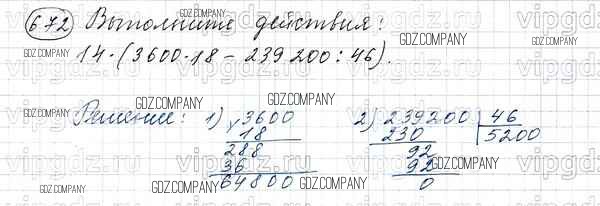 672 Выполните действия:
14·(3600·18 - 239200:46).
Решение: 1) × 3600
18
288
36
64800
2) 239200 | 46
230 | 5200
92
92
0
GDZ.COMPANY
vipgdz